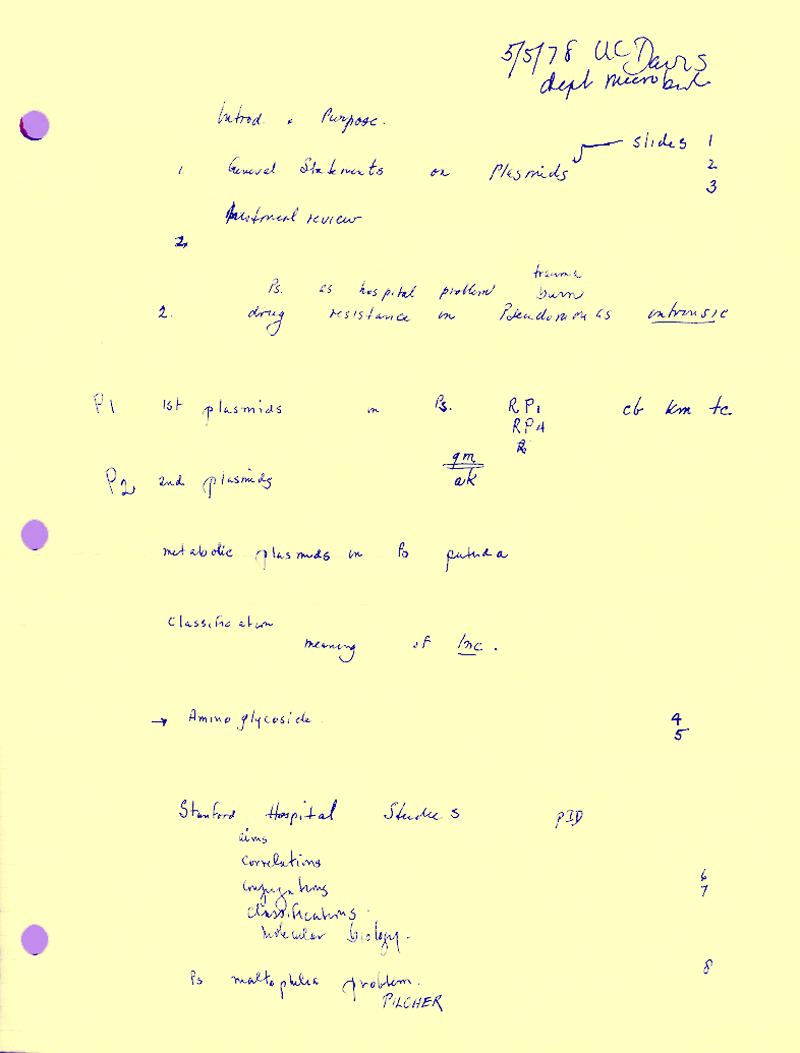 5/5/78 UC Davis
dept microbiol
Introd. & Purpose.
slides 1
1. General Statements on Plasmids 2
3
review
2.
trauma
Ps. as hospital problem burn
2. drug resistance in Pseudomonas intrinsic
P1 1st plasmids in Ps. RP1 cb km tc
RP4
R
gm
P2 2nd plasmids ak
metabolic plasmids in Ps putida
Classification
meaning of Inc.
→ Aminoglycoside 4
5
Stanford Hospital Studies PID
aims
correlations 6
conjugations 7
classifications.
molecular biology.
Ps maltophilia problem. 8
PILCHER